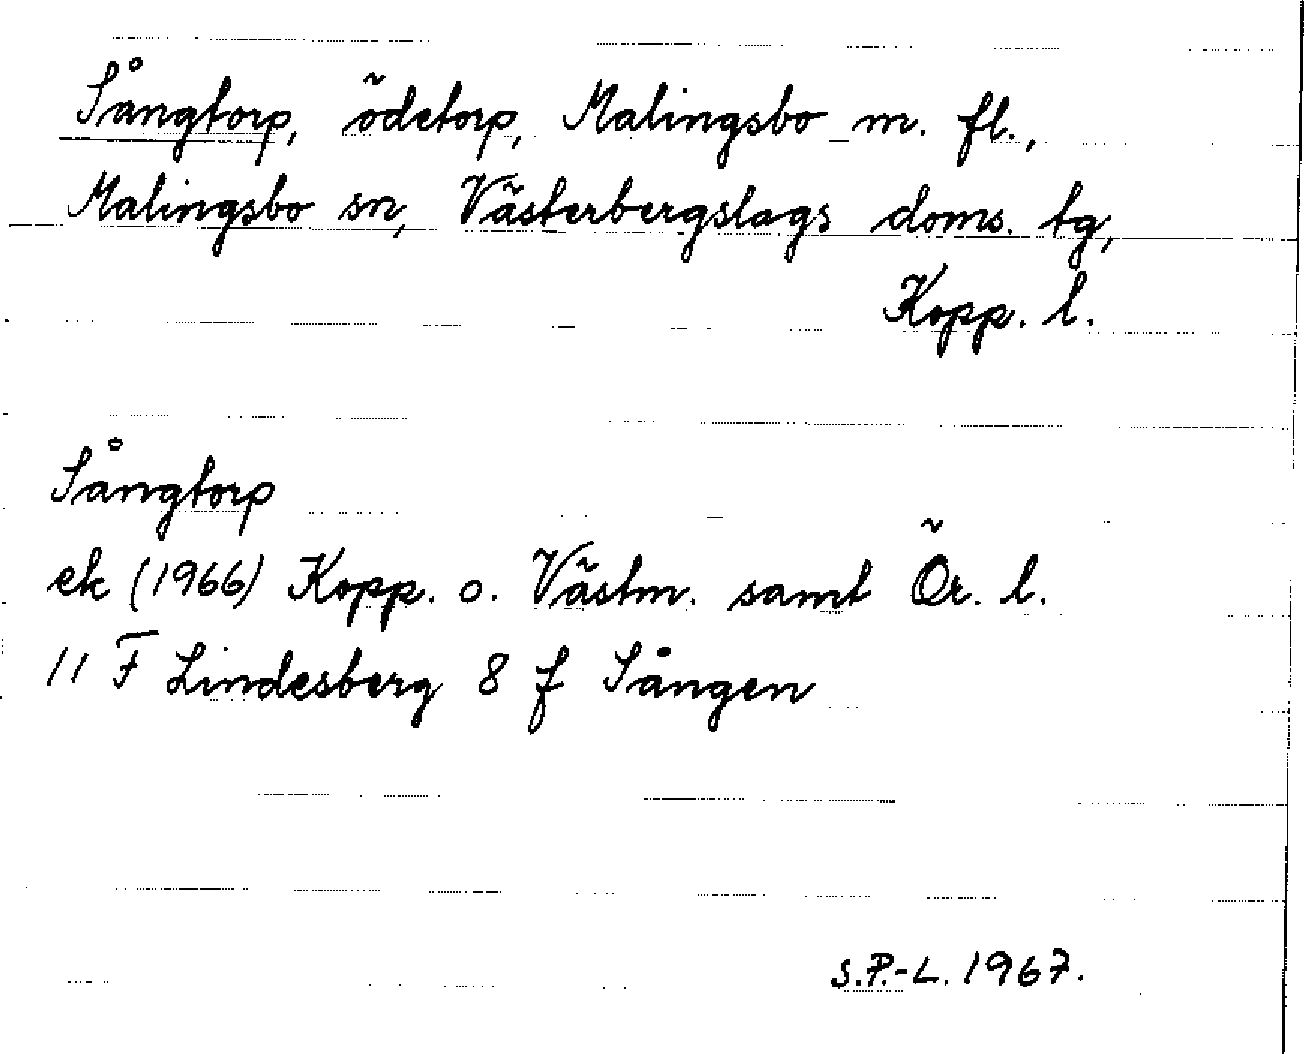 Sångtorp, ödetorp, Malingsbo m. fl.,
Malingsbo sn, Västerbergslags doms. tg,
Kopp. l.
Sångtorp
ek (1966) Kopp. o. Västm. samt Ör. l.
11 F Lindesberg 8 f Sången
S.P.-L. 1967.